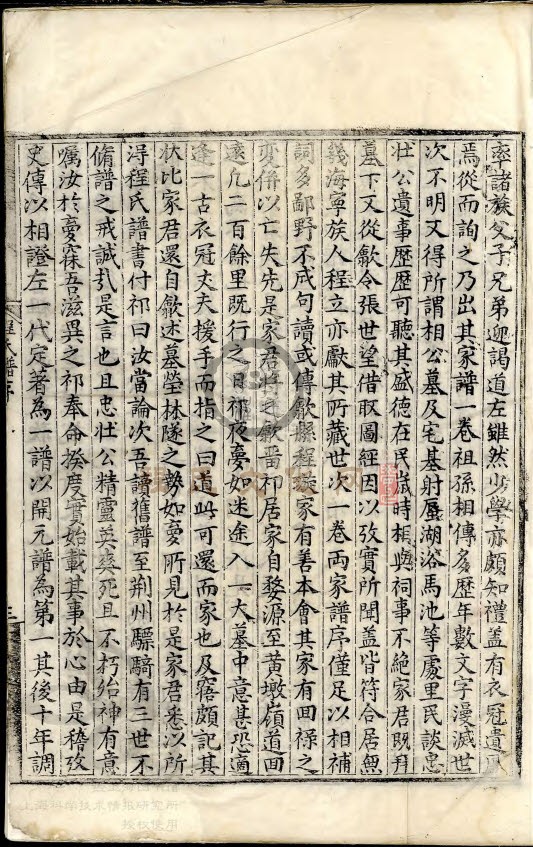 率諸族父子兄弟迎謁道左雖然少學亦頗知禮蓋有衣冠遺風
焉從而詢之乃出其家譜一卷祖孫相傳多歷年數文字漫滅世
次不明又得所謂相公墓及宅基射蜃湖浴馬池等處里民談忠
壯公遺事歷歷可聽其盛德在民歲時相與祠事不絕家居既拜
墓下又從歙令張世望借取圖經因以攷實所聞蓋皆符合居無
幾海寧族人程立亦獻其所藏世次一卷両家譜序僅足以相補
詞多鄙野不成句讀或傳歙縣程家有善本會其家有囬祿之
變併以亡失先是家君將之歙畱祁居家自婺源至黃墩嶺道囬
遠凢二百餘里既行之日祁夜夢如迷途入一大墓中意甚恐適
逢一古衣冠丈夫援手而指之曰道此可還而家也及寤頗記其
狀比家君還自歙述墓塋林隧之勢如夢所見於是家君悉以所
淂程氏譜書付祁曰汝當論次吾讀舊譜至荆州驃騎有三世不
脩譜之戒誠㢤是言也且忠壯公精靈英爽死且不朽殆神有意
嘱汝於夢寐吾滋異之祁奉命揆度實始載其事於心由是稽攷
史傳以相證左一代定著為一譜以開元譜為第一其後十年調
氏譜序
三
上海科学技术情报研究所
授权使用